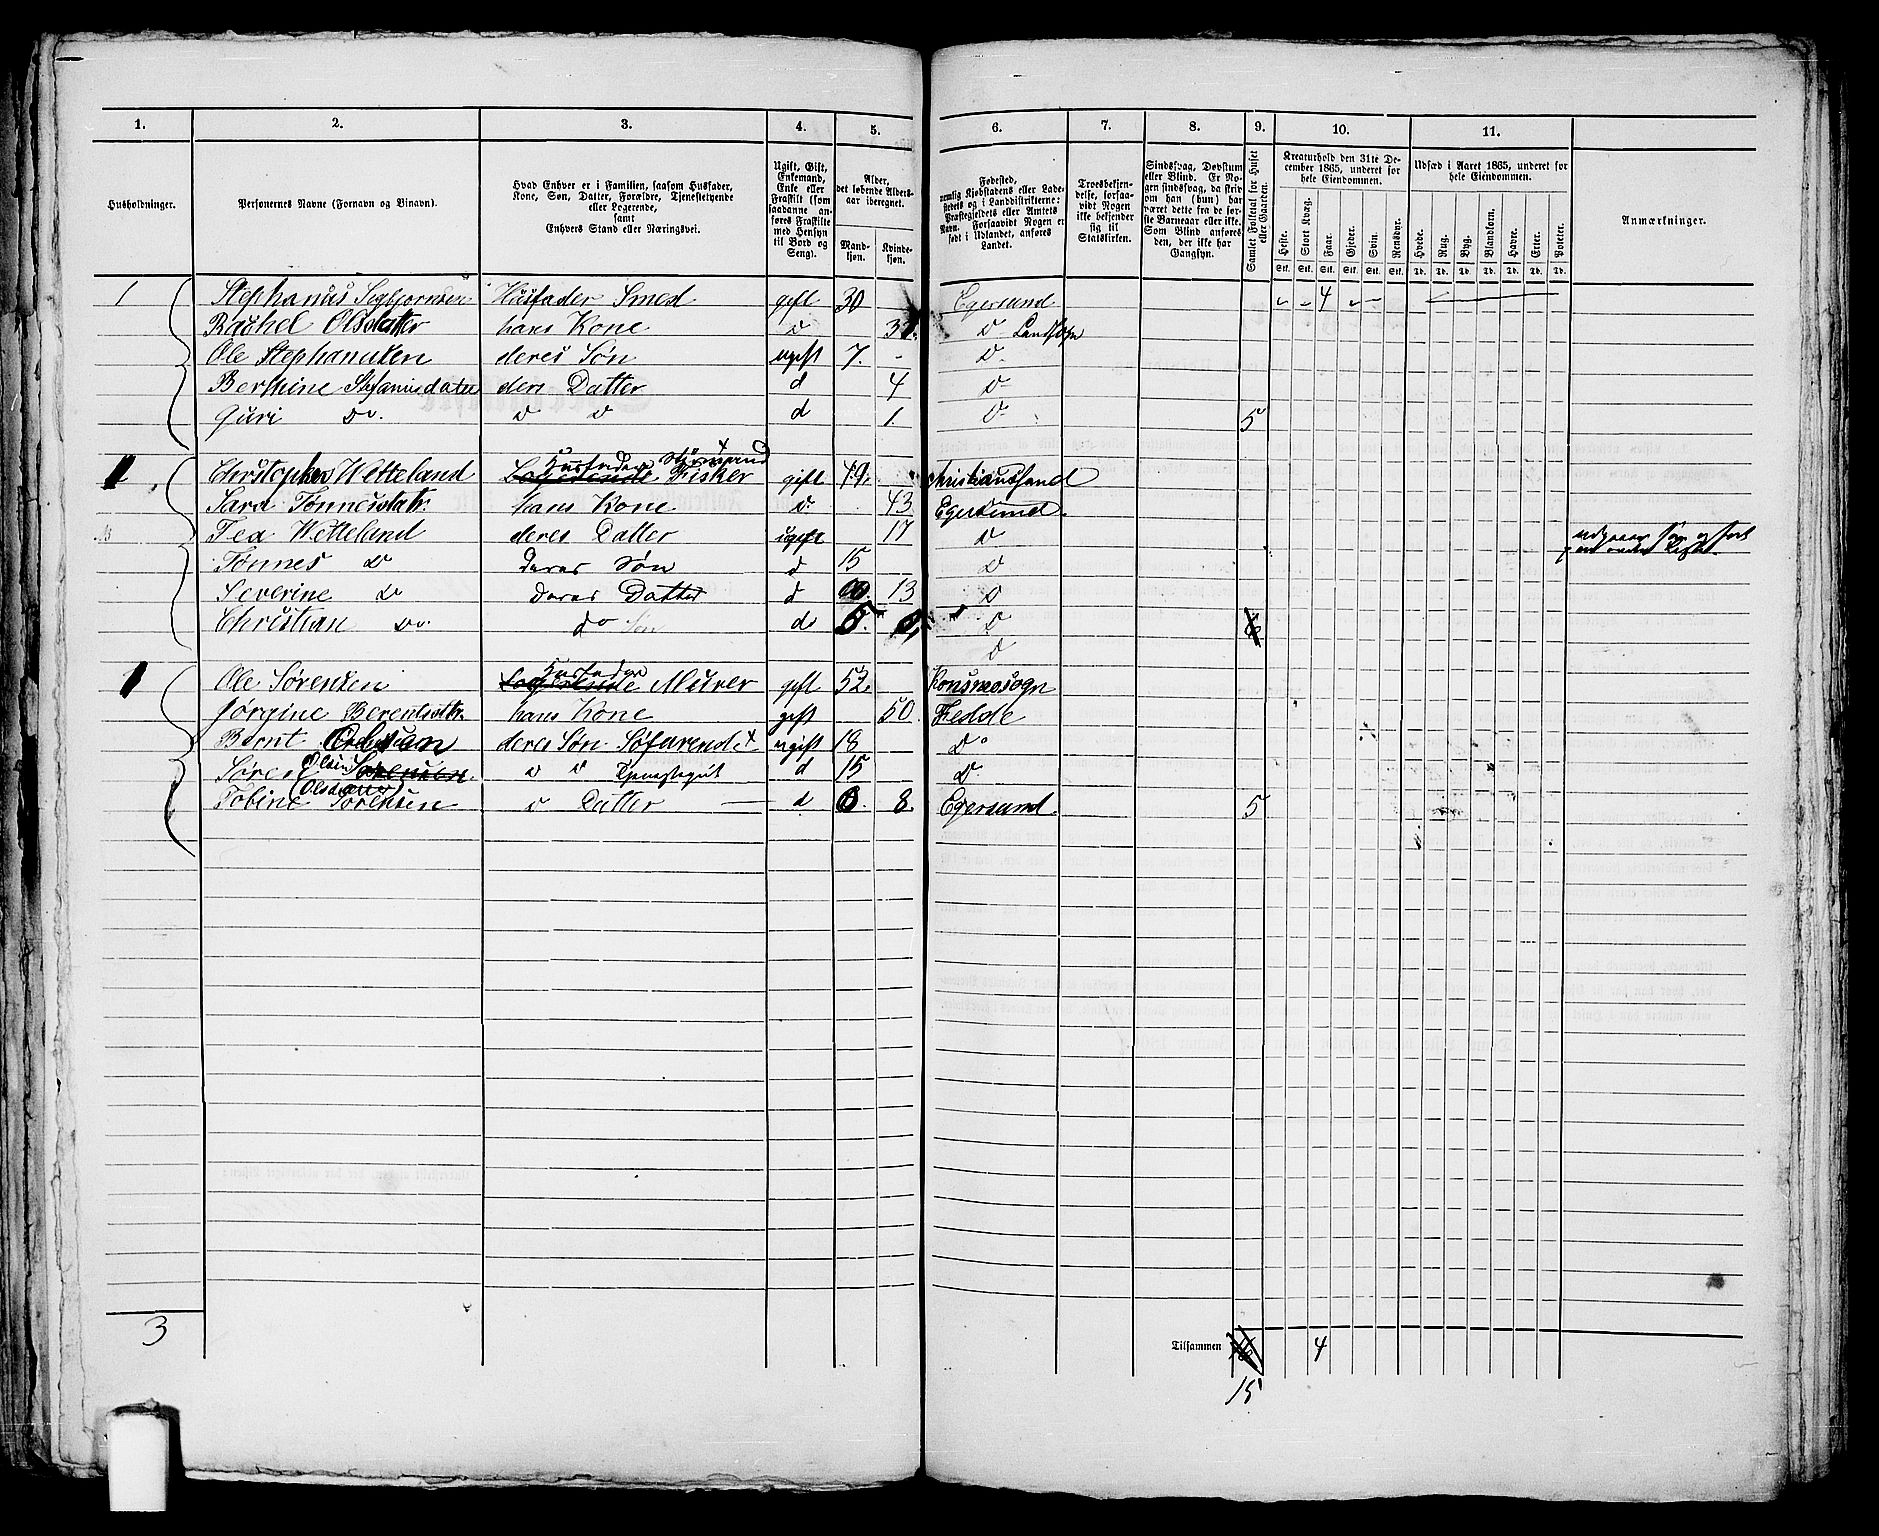 1. 2. 3. 4. 5. 6. 7. 8. 9. 10. 11.
Husholdninger.
Personernes Navne (Fornavn og Binavn).
Hvad Enhver er i Familien, saasom Husfader,
Kone, Søn, Datter, Forældre, Tjenestetyende
eller Logerende,
samt
Enhvers Stand eller Næringsvei.
Ugift, Gift,
Enkemand,
Enke eller
Fraskilt (som
saadanne an-
føres Fraskilte
med Hensyn
til Bord og
Seng).
Alder,
det løbende Alders-
aar iberegnet.
Mand-
kjøn.
Kvinde-
kjøn.
Fødested,
nemlig Kjøbstadens eller Lade-
stedets og i Landdistrikterne:
Præstegjeldets eller Amtets
Navn. Forsaavidt Nogen er
født i Udlandet, anføres
Landet.
Troesbekjen-
delse, forsaa-
vidt Nogen
ikke bekjender
sig til
Statskirken.
Sindssvag, Døvstum
eller Blind. Er No-
gen sindssvag, da skriv
om han (hun) har
været dette fra de før-
ste Barneaar eller ikke.
Som Blind anføres
den, der ikke har
Gangsyn.
Samlet Folketal for Huset
eller Gaarden.
Kreaturhold den 31te De-
cember 1865, underet for
hele Eiendommen.
Heste. Stort Kvæg. Faar. Gjeder. Svin. Rensdyr.
Stk. Stk. Stk. Stk. Stk. Stk.
Udsæd i Aaret 1865, underet for
hele Eiendommen.
Hvede. Rug. Byg. Blandkorn. Havre. Erter. Poteter.
Td. Td. Td. Td. Td. Td. Td.
Anmærkninger.
1 Stephanus Sigbjørnsen Husfader Smed gift 30 Egersund 4
Rachel Olsdatter hans Kone d Do Landsogn
Ole Stephansen deres Søn ugift 7. Do
Berthine Stefanusdatter dere Datter d 4 Do
Guri Do. D D d 1. Do 5
Husfader Styrmand
1 Christopher Wetteland Logerende Fisker gift 49. Christianssand
Sara Tønnesdatr. hans Kone d. 43 Egersund.
Tea Wetteland deres Datter ugift 17 D udgaaer
Tønnes D deres Søn d 15 D
Severine D deres Datter d 13 D
Christian Do. do Søn d. 5. D 6
D
Husfader
1 Ole Sørensen Logerende Murer gift 52. Konsmosogn
Jørgine Berentsdatr. hans Kone gift 50. Fedde
Bernt Olsen deres Søn Søfarende x ugift 18 Do
Olsen
Søren Sørensen. D D Tjenestegut d 15 D.
(Olsdatter)
Tobine Sørensen D Datter d 8. Egersund. 5
3
Tilsammen 4
15